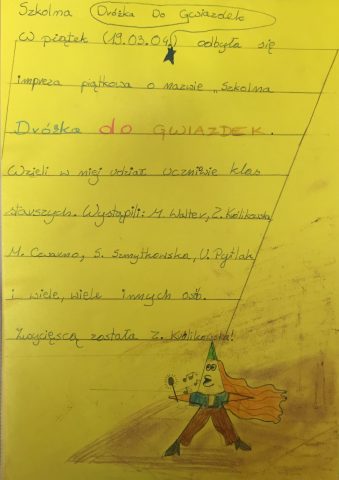 Szkolna Dróżka Do Gwiazdek
W piątek (19.03.04.) odbyła się
impreza piątkowa o nazwie „Szkolna
Dróżka do GWIAZDEK.
Wzieli w niej udział uczniwie klas
starszych. Wystąpili: M. Walter, Z. Królikowska,
M. S. Szmytkowska, U. Pytlak
i wiele, wiele innych osób.
Zwycięscą została Z. Królikowska!